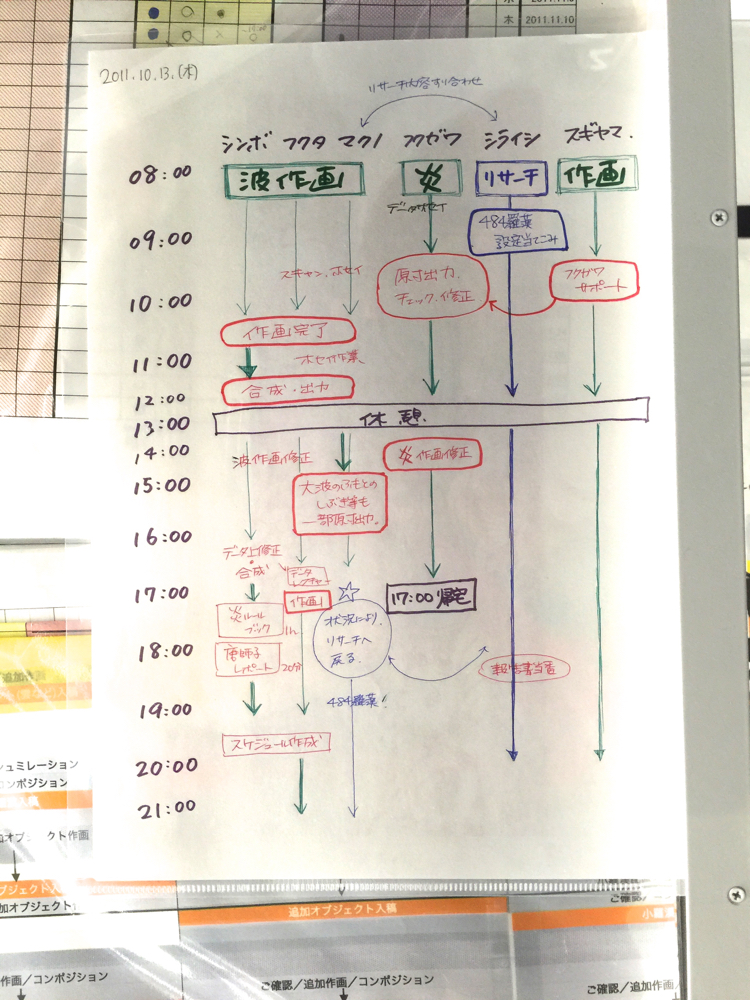 木 2011.11.10
2011.10.13.(木)
リサーチ内容すり合わせ
シンボ フクタ マクノ フクガワ シライシ スギヤマ.
08:00 波作画 炎 リサーチ 作画
データサセイ
484羅漢
設定当てこみ
09:00
スキャン.ホセイ
原寸出力.
チェック.修正
フクガワ
サポート
10:00
作画完了
11:00
ホセイ作業
12:00 合成・出力
休憩.
13:00
14:00
波作画修正
炎作画修正
15:00
大波のふもとの
しぶき等も
一部原寸出力.
16:00
データ上修正
・合成
データ
レクチャー
17:00 作画
17:00 帰宅
炎ルール
ブック 1h
状況により.
リサーチへ
戻る.
18:00
唐獅子
レポート 20分
報告書当番
19:00
484羅漢!
スケジュール作成
20:00
21:00
シュミレーション
コンポジション
加オブジェクト作画
追加オブジェクト入稿
作画／コンポジション
ご確認／追加作画／コンポジション
ご確認／追加作画／